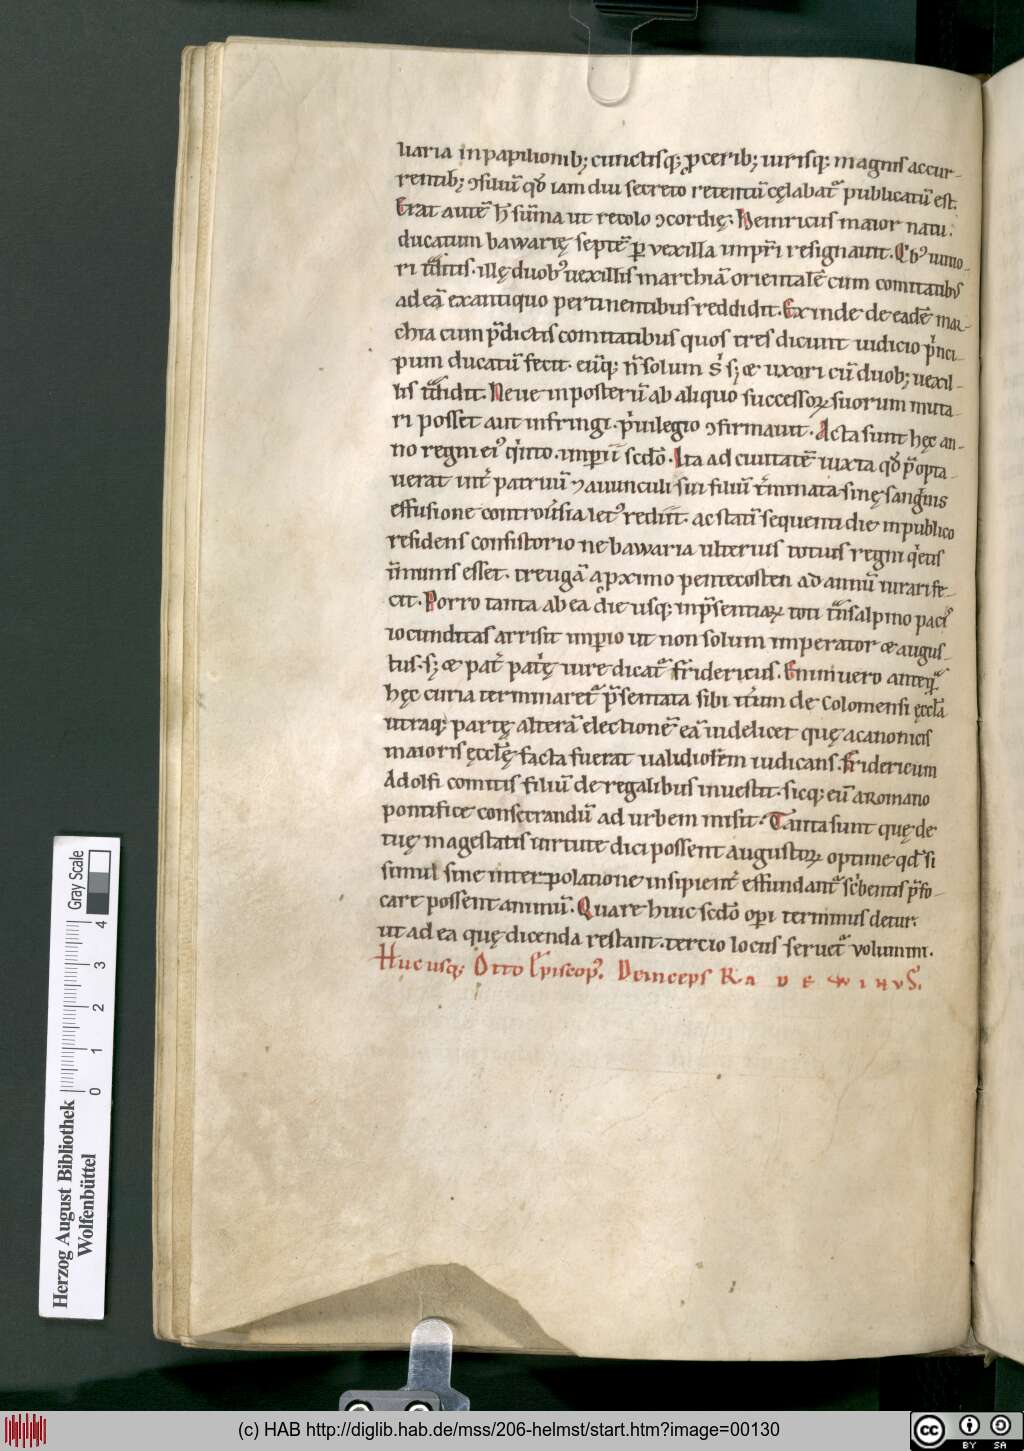 liaria in papilionib; cunctisq; ꝓcerib; uirisq; magnis accur-
rentib; ꝯsiliū qd̄ iam diu secreto retentū cęlabat᷑ publicatū est.
Erat autē h̄ sūma ut recolo ꝯcordię. Heinricus maior natu.
ducatum bawarię septē ꝑ vexilla imꝑr̄i resignauit. Eb᷒ iunio-
ri t᷑ditis. illę duob᷒ uexillis marchiā orientalē cum comitatibus
ad eā ex antiquo pertinentibus reddidit. Exinde de eadē mar-
chia cum p̄dictis comitatibus quos tres dicunt iudicio pͥnci-
pum ducatū fecit. eūq; n̄ solum sͥ s; & uxori cū duob; uexil-
lis t᷑didit. Neue in posterū ab aliquo successoꝝ suorum muta-
ri posset aut infringi. pͥuilegio ꝯfirmauit. Acta sunt hęc an-
no regni ei᷒ qͥnto. imꝑii scd̄o. Ita ad ciuitatē iuxta qd̄ p̄opta-
uerat int᷑ patruū ⁊ auunculi sui filiū t᷑minata sinę sangͥnis
effusione controū̄sia let᷒ rediit. ac statī sequenti die in publico
residens consistorio ne bawaria ulterius totius regni qͥetis
īmunis esset. treugā a ꝓximo pentecosten ad annū iurari fe-
cit. Porro tanta ab ea die usq; in p̄sentiaꝝ toti t᷑nsalpino pacis
iocunditas arrisit imꝑio ut non solum imperator & augus-
tus. s; & pat᷑ patͥę iure dicat᷑ fridericus. Enim uero anteq᷑
hęc curia terminaret᷑ p̄sentata sibi it᷑um de Coloniensi ęccl̄a
utraq; partę alterā electionē eā uidelicet quę a canonicis
maioris ęccl̄ę facta fuerat ualidiorē iudicans. fridericum
Adolfi comitis filiū de regalibus inuestit. sicq; eū a Romano
pontifice consecrandū ad urbem misit. Tanta sunt quę de
tuę magestatis uirtute dici possent augustoꝝ optime qd̄ si
simul sine interpolatione insipient᷑ effundant᷑ scͥbentis p̄fo-
care possent animū. Quare huic scd̄o oꝑi terminus detur.
ut ad ea quę dicenda restant. tercio locus seruet᷑ volumini.
Huc usq; Otto Ep̄iscop᷒. Deinceps RADEWINVS.
Herzog August Bibliothek
Wolfenbüttel
0 1 2 3 4
Gray Scale
(c) HAB http://diglib.hab.de/mss/206-helmst/start.htm?image=00130
cc BY SA